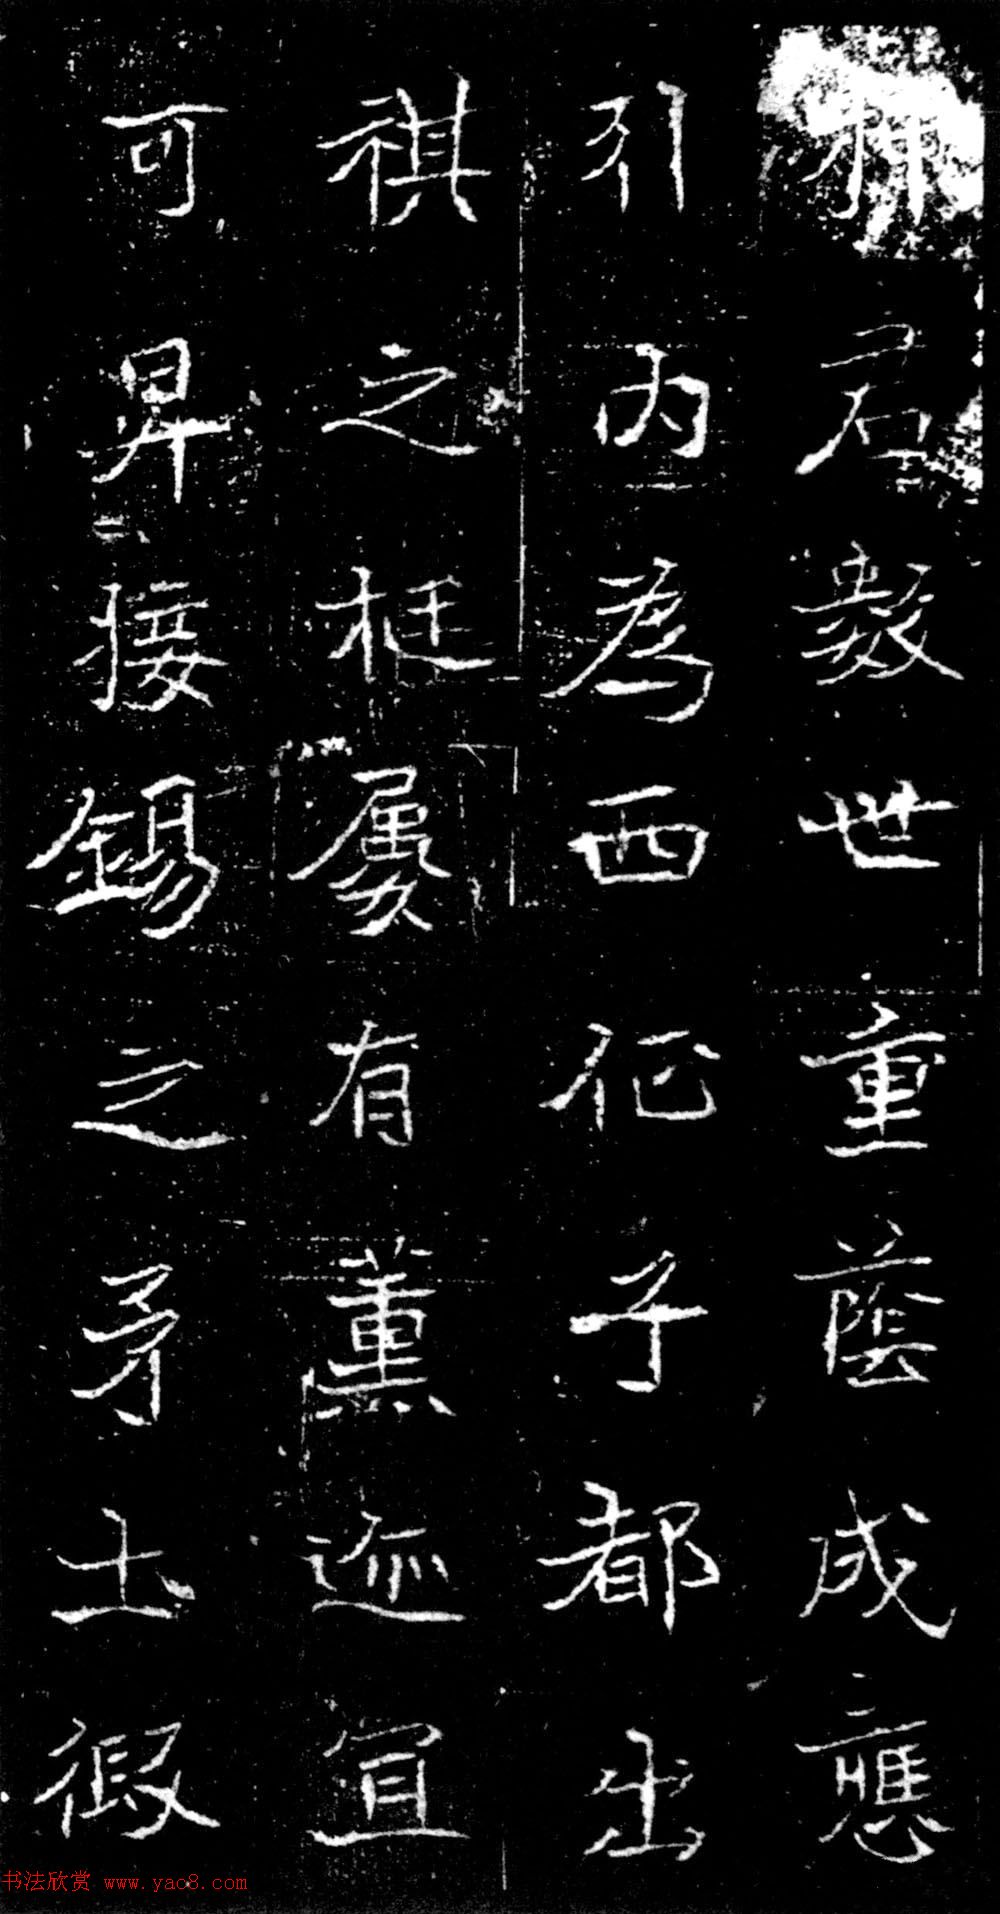 君毅世重蔭成應
引内為西征子都出
祺之梃屬有薰迹宜
可昇接錫之矛土假
书法欣赏 www.yac8.com